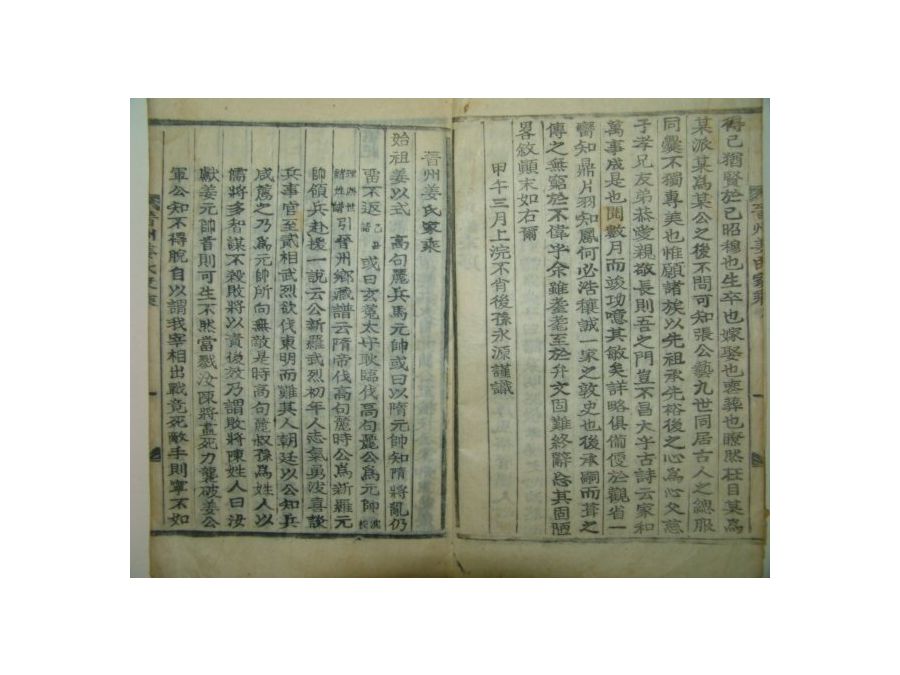 得已猶賢於已昭穆也生卒也嫁娶也喪葬也瞭然在目某爲
某派某爲某公之後不問可知張公藝九世同居古人之緦服
同爨不獨專美也惟願諸族以先祖承先裕後之心爲心父慈
子孝兄友弟恭愛親敬長則吾之門豈不昌大乎古詩云家和
萬事成是也閱數月而竣功噫其敏矣詳略俱備便於觀省一
臠知鼎片羽知鳳何必浩穰誠一家之敦史也後承嗣而葺之
傳之無窮於不偉乎余雖耋耄至於弁文固難終辭忘其固陋
畧敘顚末如右爾
甲午三月上浣不肖後孫永源謹識
晋州姜氏家乘
始祖姜以式 高句麗兵馬元帥或曰以隋元帥知隋將亂仍
留不返 或曰玄菟太守耿臨伐高句麗公爲元帥
引晉州鄕藏譜云隋帝伐高句麗時公爲新羅元
帥領兵赴援一說云公新羅武烈初年人志氣勇浚喜談
兵事官至貳相武烈欲伐東明而難其人朝廷以公知兵
咸薦之乃爲元帥所向無敵是時高句麗叔孫爲姓人以
儒將多智謀不殺敗將以責後效乃謂敗將陳姓人曰汝
獻姜元帥首則可生不然當戮汝陳將盡死力襲破姜公
軍公知不得脫自以謂我宰相出戰竟死敵手則寧不如
晋州姜氏家乘